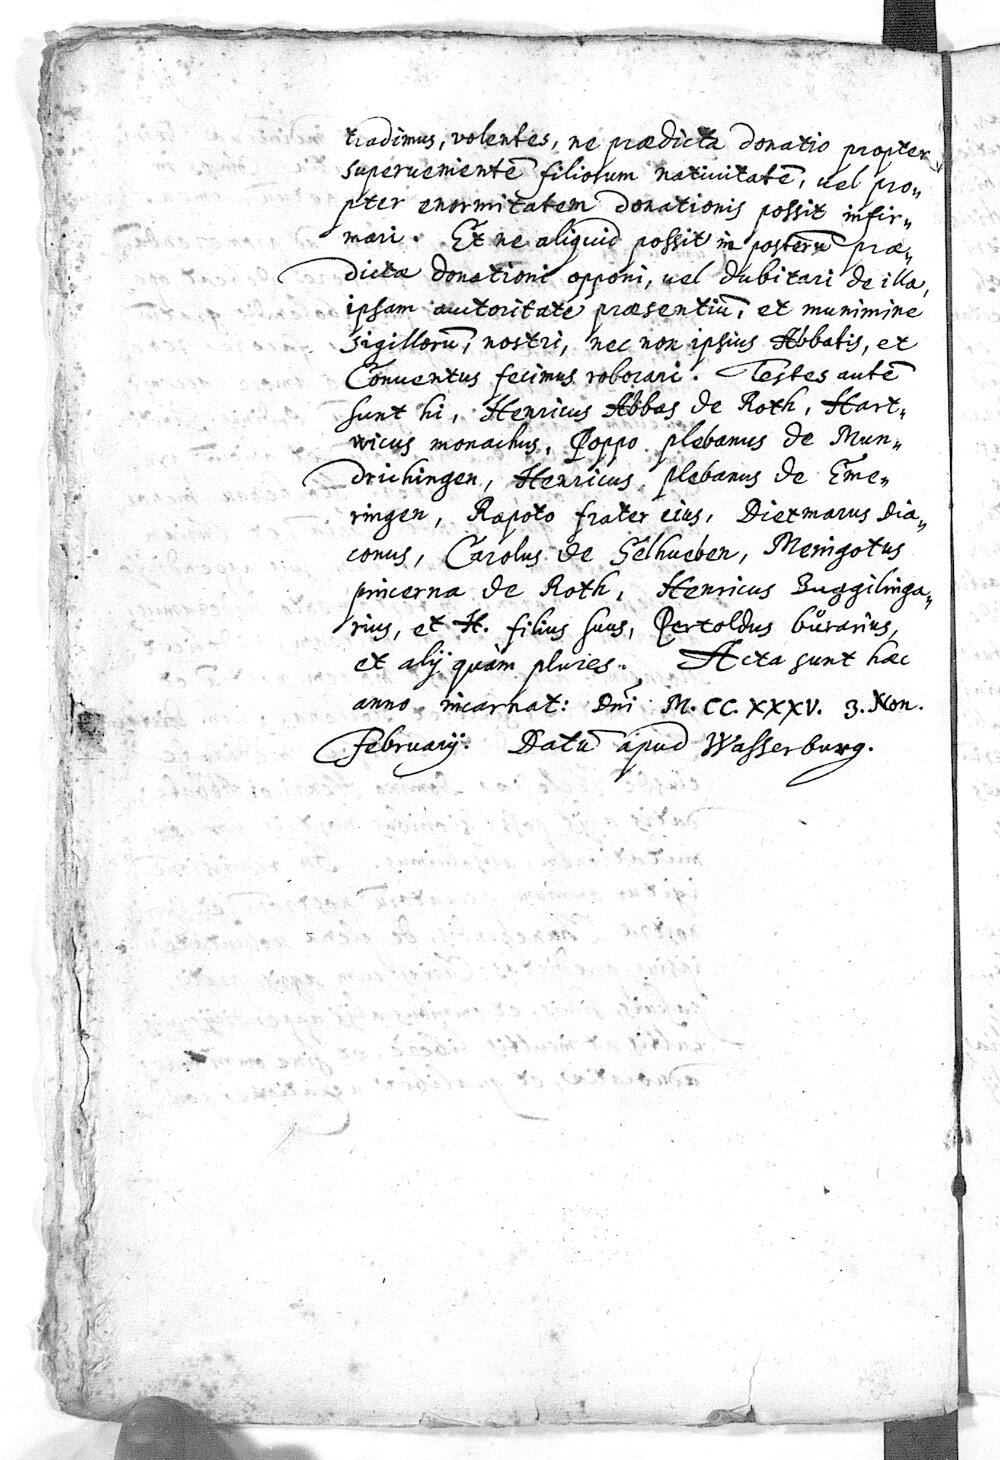 tradimus, volentes, ne prædicta donatio propter
superueniente͂ filiorum natiuitate͂, uel pro„
pter enormitatem donationis possit infir„
mari. Et ne aliquid possit in posteru͂ præ„
dictæ donationi opponi, uel dubitari de illa,
ipsam autoritate præsentiu͂, et munimine
sigilloru͂, nostri, nec non ipsius Abbatis, et
Conuentus fecimus roborari. Testes aute͂
sunt hi, Henricus Abbas de Roth, Hart„
wicus monachus, Poppo plebanus de Mun„
drichingen, Henricus plebanus de Eme„
ringen, Rapoto frater eius, Dietmarus dia„
conus, Carolus de Selhueben, Meingotus
pincerna de Roth, Henricus Buggilinga„
rius, et H. filius suus, Pertoldus bůrarius,
et alij quàm plures. Acta sunt hæc
anno incarnat: Dn̄i M. CC. XXXV. 3. Non.
Februarij. Datu͂ apud Wasserburg.